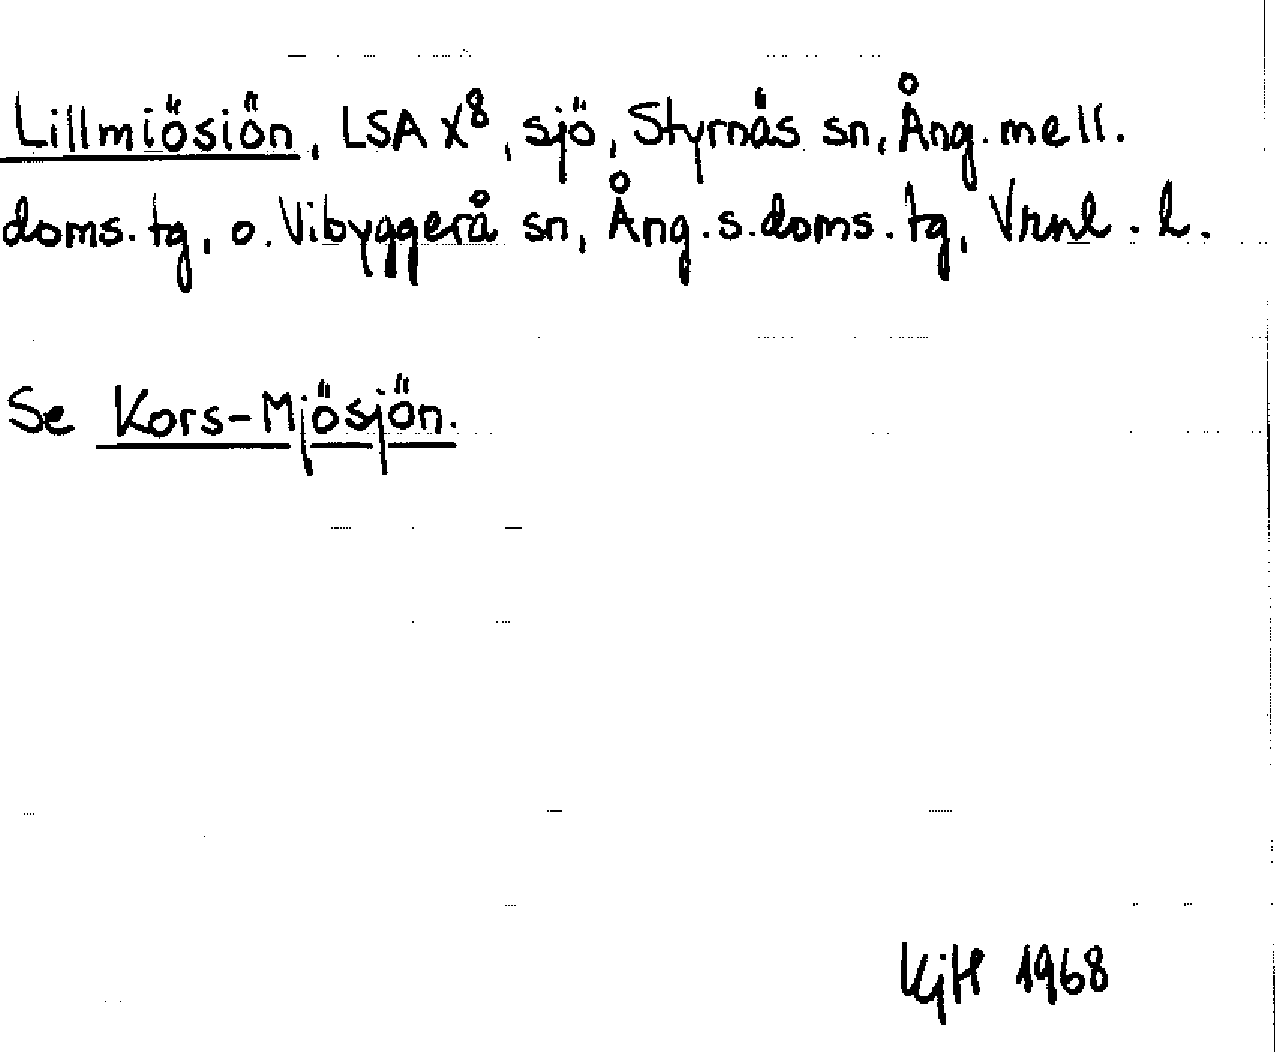 Lillmiösiön, LSA X⁸, sjö, Styrnäs sn, Ång. mell.
doms. tg, o. Vibyggerå sn, Ång. s. doms. tg, Vrnl. l.
Se Kors-Mjösjön.
KjH 1968